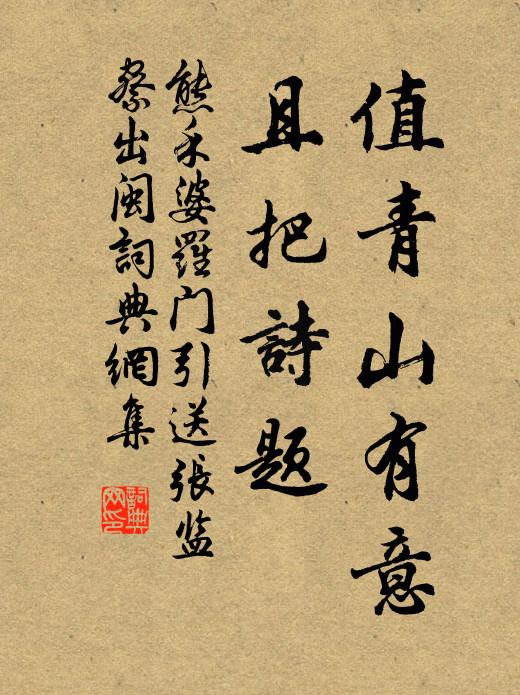 值青山有意
且把詩题
熊禾婆羅门引送張监
察出闽詞典網集
詞典
网印